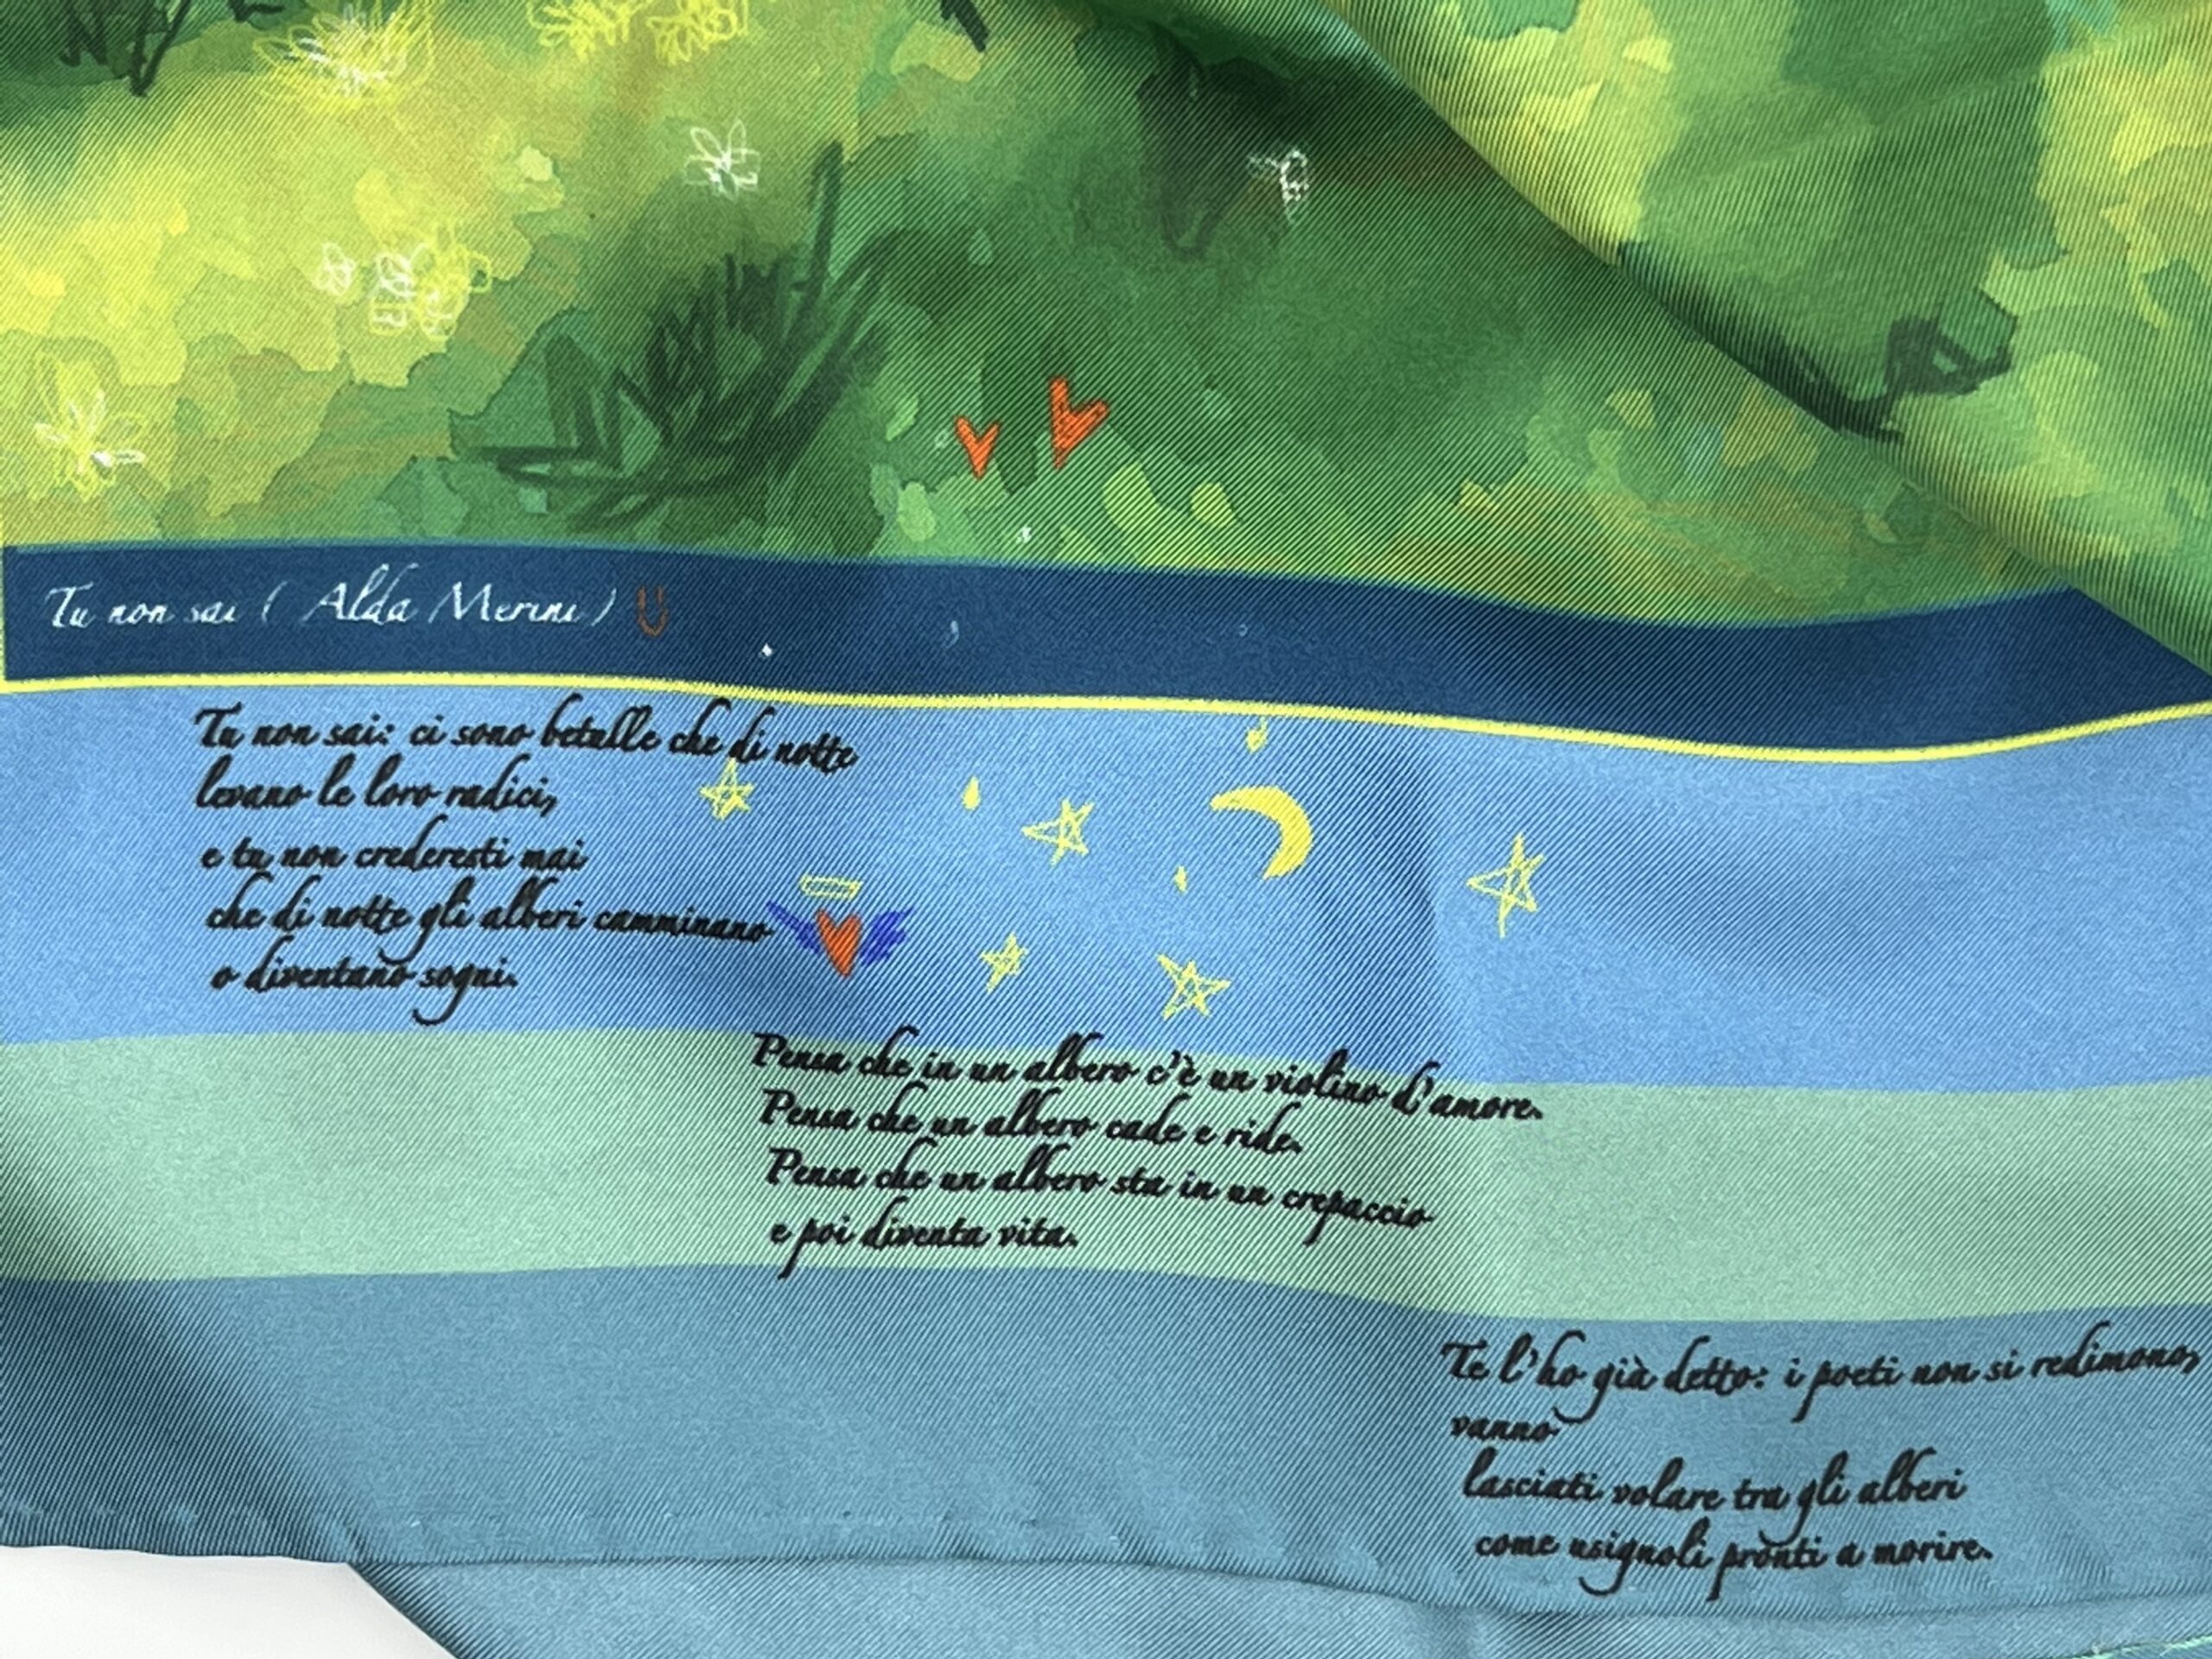 Tu non sai ( Alda Merini )
Tu non sai: ci sono betulle che di notte
levano le loro radici,
e tu non crederesti mai
che di notte gli alberi camminano
o diventano sogni.
Pensa che in un albero c'è un violino d'amore.
Pensa che un albero cade e ride.
Pensa che un albero sta in un crepaccio
e poi diventa vita.
Te l'ho già detto: i poeti non si redimono,
vanno
lasciati volare tra gli alberi
come usignoli pronti a morire.